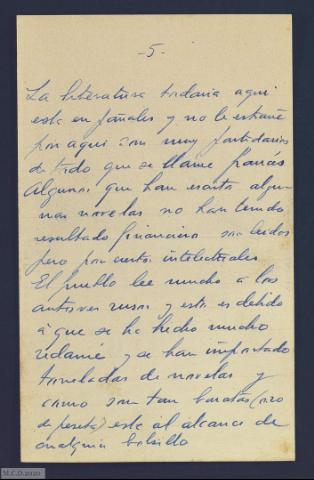 -5-
La literatura todavia aqui
esta en pañales y no le estrañe
por aqui son muy partidarios
de todo que se llame francés
Algunos que han escrito algu-
nas novelas no han tenido
resultado financiero son leidos
pero por cuentos intelectuales
El pueblo lee mucho a los
autores rusos y esto es debido
á que se ha hecho mucho
reclame y se han importado
toneladas de novelas y
como son tan baratas (
de peseta) esta al alcance de
cualquier bolsillo
M.C.D.2020